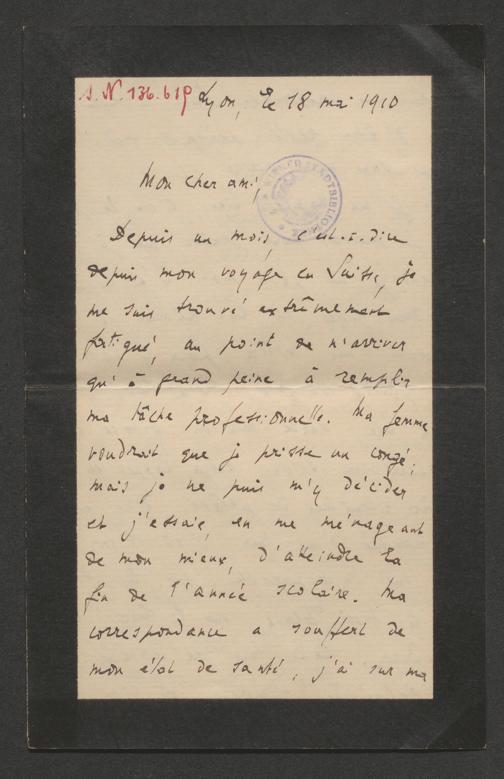 J. N. 136.619
Lyon, le 18 mai 1910
Mon cher ami,
WIENER STADTBIBLIOTHEK
Depuis un mois, c'est-à-dire
depuis mon voyage en Suisse, je
me suis trouvé extrêmement
fatigué, au point de n'arriver
qu'à grand peine à remplir
ma tâche professionnelle. Ma femme
voudrait que je prisse un congé;
mais je ne puis m'y décider
et j'essaie, en me ménageant
de mon mieux, d'atteindre la
fin de l'année scolaire. Ma
correspondance a souffert de
mon état de santé; j'ai sur ma